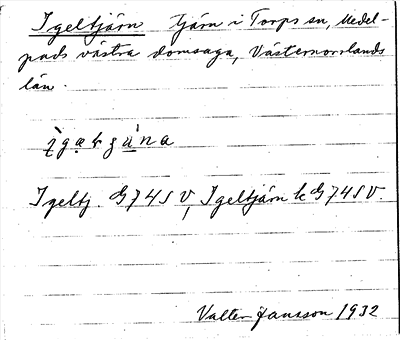 Igeltjärn tjärn i Torps sn, Medel-
pads västra domsaga, Västernorrlands
län.
Igeltj. G74SV, Igeltjärn k G74SV.
Valter Jansson 1932